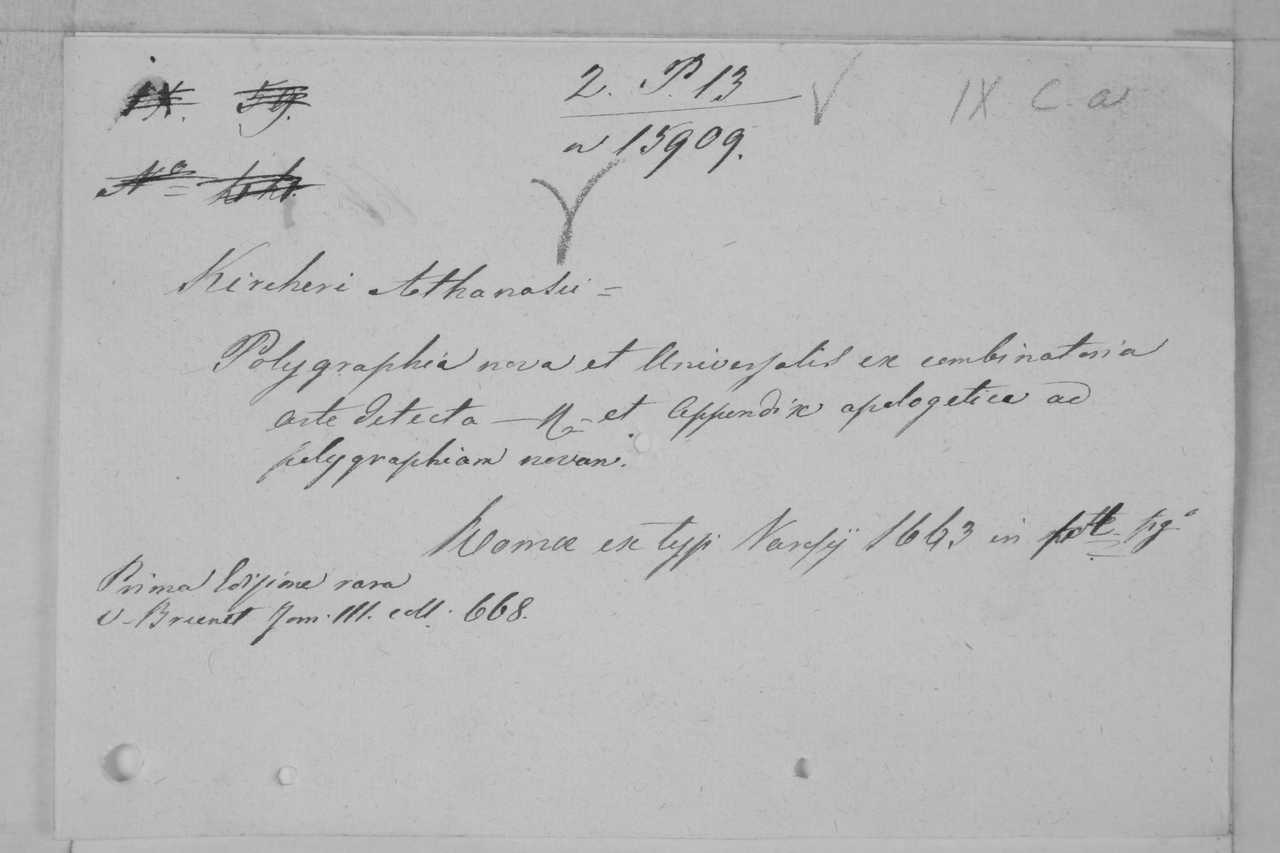 IX. 59.
2. P. 13
IX C. a
a 15909.
Nº =
Kircheri Athanasii =
Polygraphia nova et Universalis ex combinatoria
arte detecta — et Appendix apologetica ad
polygraphiam novam.
Romæ ex typ. Varesij 1663 in fig.ª
Prima Edizione rara
V. Brunet Tom. III. coll. 668.